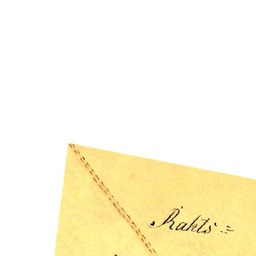 Rakts =